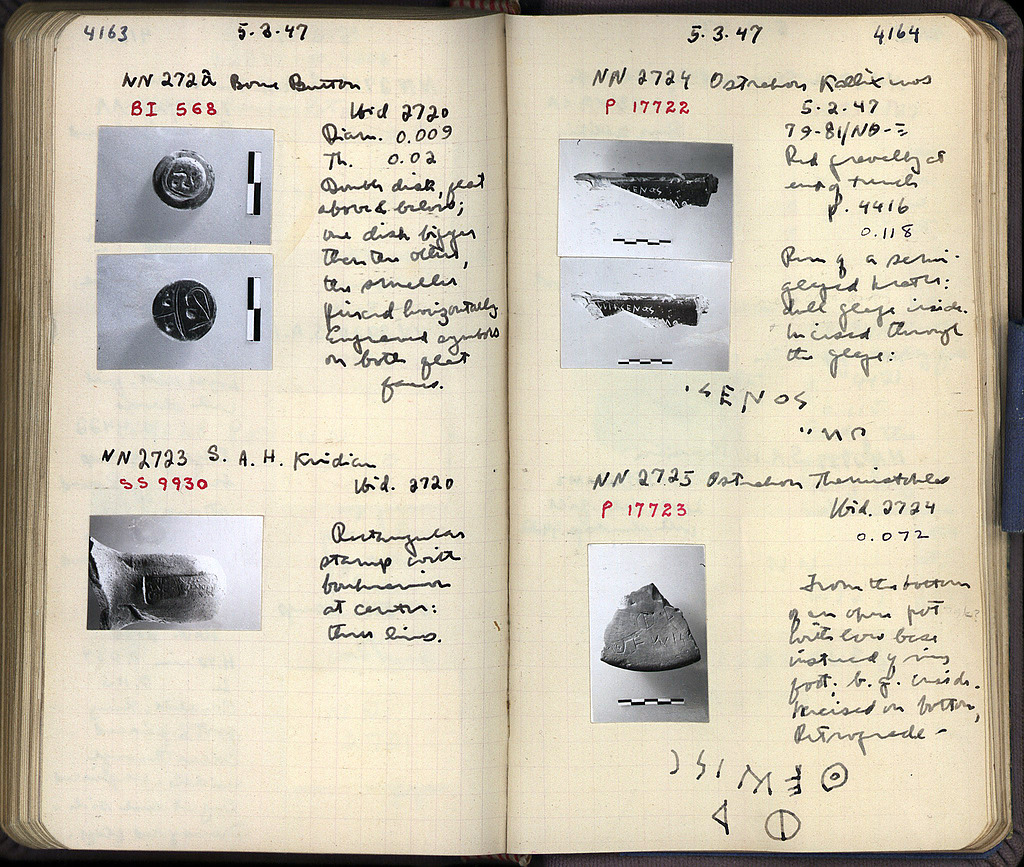 4163
5.3.47
NN 2722 Bone Button
BI 568
Ibid 2720
Diam. 0.009
Th. 0.02
Double disk, flat
above & below;
one disk bigger
than the other,
the smaller
pierced horizontally
Engraved symbols
on both flat
faces.
NN 2723 S. A. H. Knidian
SS 9930
Ibid. 2720
Rectangular
stamp with
at center:
three lines.
5.3.47
4164
NN 2724 Ostrakon Kallixenos
P 17722
5.2.47
79-81/ΝΘ-Ξ
Red gravelly at
end of trench
p. 4416
0.118
Rim of a semi-
glazed krater:
dull glaze inside.
Incised through
the glaze:
ΞENOS
NN 2725 Ostrakon Themistokles
P 17723
Ibid. 2724
0.072
From the bottom
of an open pot
with low base
instead of ring
foot: b.g. inside.
Incised on bottom,
Retrograde -